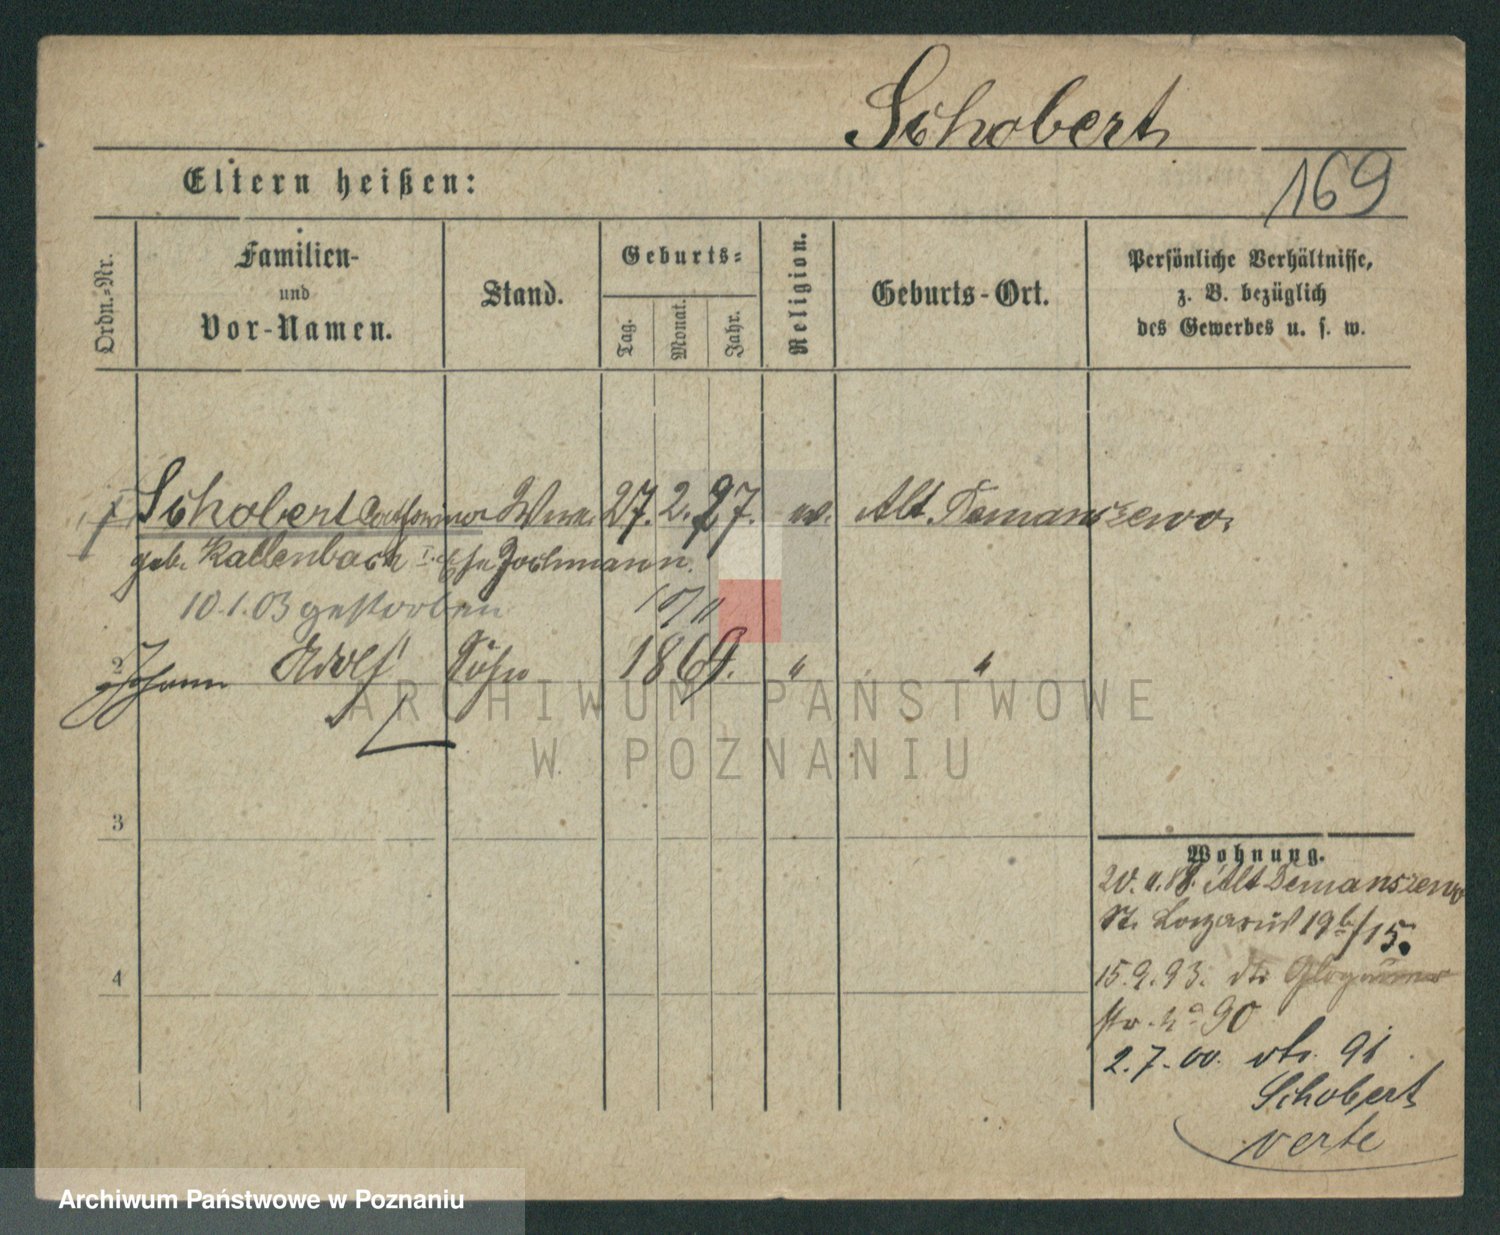 Schobert
Eltern heißen:
169
Ordn.-Nr.
Familien-
und
Vor-Namen.
Stand.
Geburts-
Tag.
Monat.
Jahr.
Religion.
Geburts-Ort.
Persönliche Verhältnisse,
z. B. bezüglich
des Gewerbes u. s. w.
Schobert Catharina Wwe. 27. 2. 27. Alt Demanszewo.
geb. Kallenbach I. Ehe Jochmann.
10.1.03 gestorben
2 Johann Adolf Sohn 1869. " "
ARCHIWUM PAŃSTWOWE
W POZNANIU
3
Wohnung.
Alt Demanszewo
St. Lazarus 19b/15.
4
15.9.93. dto Glogauer
str. No 90
2.7.00. dto. 91
Schobert
verte
Archiwum Państwowe w Poznaniu